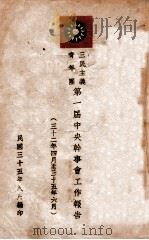 三民主義
青年團
第一屆中央幹事會工作報告
(三十二年四月至三十五年六月)
民國三十五年八月編印